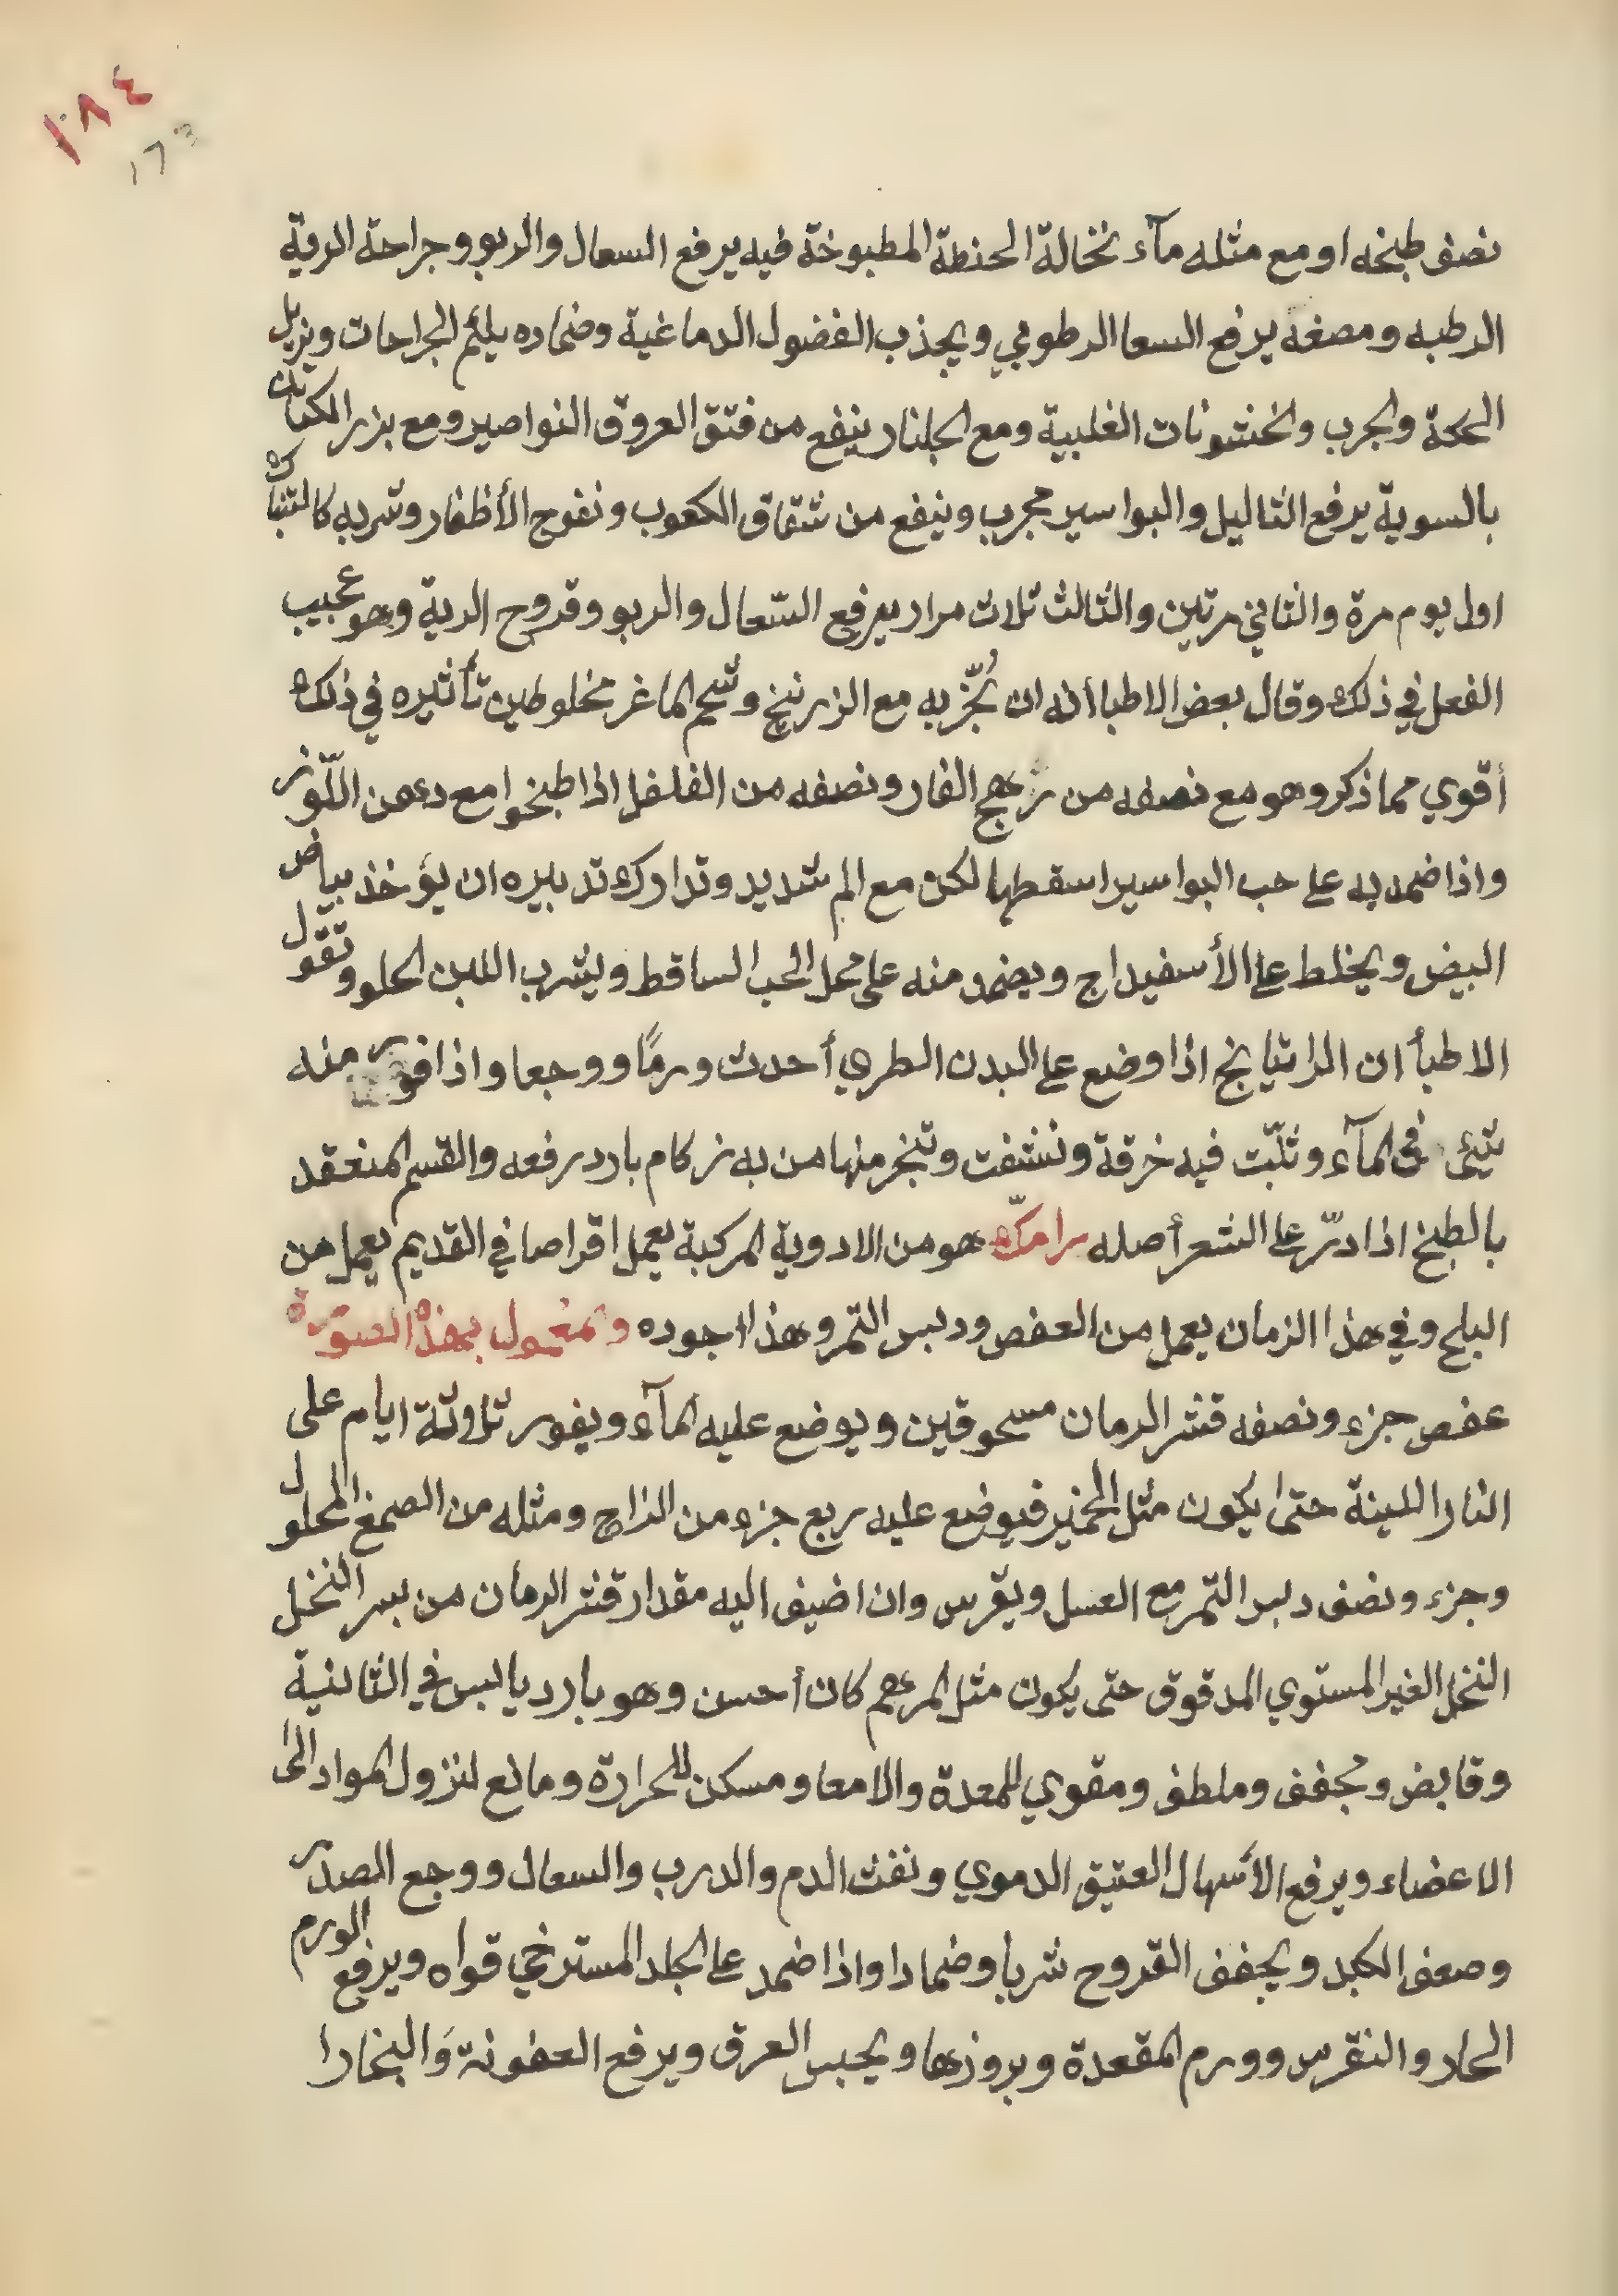 ١٨٤
١٧٣
نصف طبخه او مع مثله مآء نخالة الحنطة المطبوخة فيه يرفع السعال والربو وجراحة الرية
الرطبه ومصغه يرفع السعا الرطوبي ويجذب الفضول الدماغية وضماده يلئم الجراحات ويزيل
الحكة والجرب والخشونات الغلبية ومع الجلنار ينفع من فتق العروق النواصير ومع بزر الكتان
بالسوية يرفع الثاليل والبواسير مجرب وينفع من شقاق الكعوب ونفوج الأظفار وشربه كالتنباك
اول يوم مرة والثاني مرتين والثالث ثلاث مرار يرفع السّعال والربو وقروح الرية وهو عجيب
الفعل في ذلك وقال بعض الاطبا انه ان بُخّر به مع الزرنيخ وشحم الماغر مخلوطين تأثيره في ذلك
أقوي مما ذكر وهو مع نصفه من رهج الفار ونصفه من الفلفل اذا طبخوا مع دهن اللّوز
واذا ضمد به على حب البواسير اسقطها لكن مع الم شديد وتدارك تدبيره ان يؤخذ بياض
البيض ويخلط على الأسفيداج ويضمد منه على محل الحب الساقط ويشرب اللبن الحلو وتقول
الاطبأ ان الراتيانج اذا وضع على البدن الطري أحدث ورمًا ووجعا واذا فور منه
شئ في المآء وثلّت فيه خرقة ونشفت وتبخر منها من به زكام بارد رفعه والقسم المنعقد
بالطبخ اذا درّ على الشعر أصله رامكّ هو من الادوية المركبة يعمل اقراصا في القديم يعمل من
البلح وفي هذا الزمان يعمل من العفص ودبس التمر وهذا اجوده ومغمول بهذه الصوّرة
عفص جزء ونصفه قشر الرمان مسحوقين ويوضع عليه المآء ويفور ثلاوثة ايام على
النار اللينة حتى يكون مثل الخمير فيوضع عليه ربع جزء من الزاج ومثله من الصمغ المحلول
وجزء ونصف دبس التمر مع العسل ويقرس وان اضيف اليه مقدار قشر الرمان من بسر النخل
النخل الغير المستوي المدقوق حتى يكون مثل المرهم كان أحسن وهو بارد يابس في الثانية
وقابض ومجفف وملطف ومقوي للمعدة والامعا ومسكن للحرارة ومانع لنزول المواد الى
الاعضاء ويرفع الأسهال العتيق الدموي ونفث الدم والدرب والسعال ووجع الصدر
وصعف الكبد ويجفف القروح شربا وضمادا واذا ضمد على الجلد المسترخي قواه ويرفع الورم
الحار والنقرس وورم المقعدة وبروزها ويحبس العرق ويرفع العفونة وَالبخارا